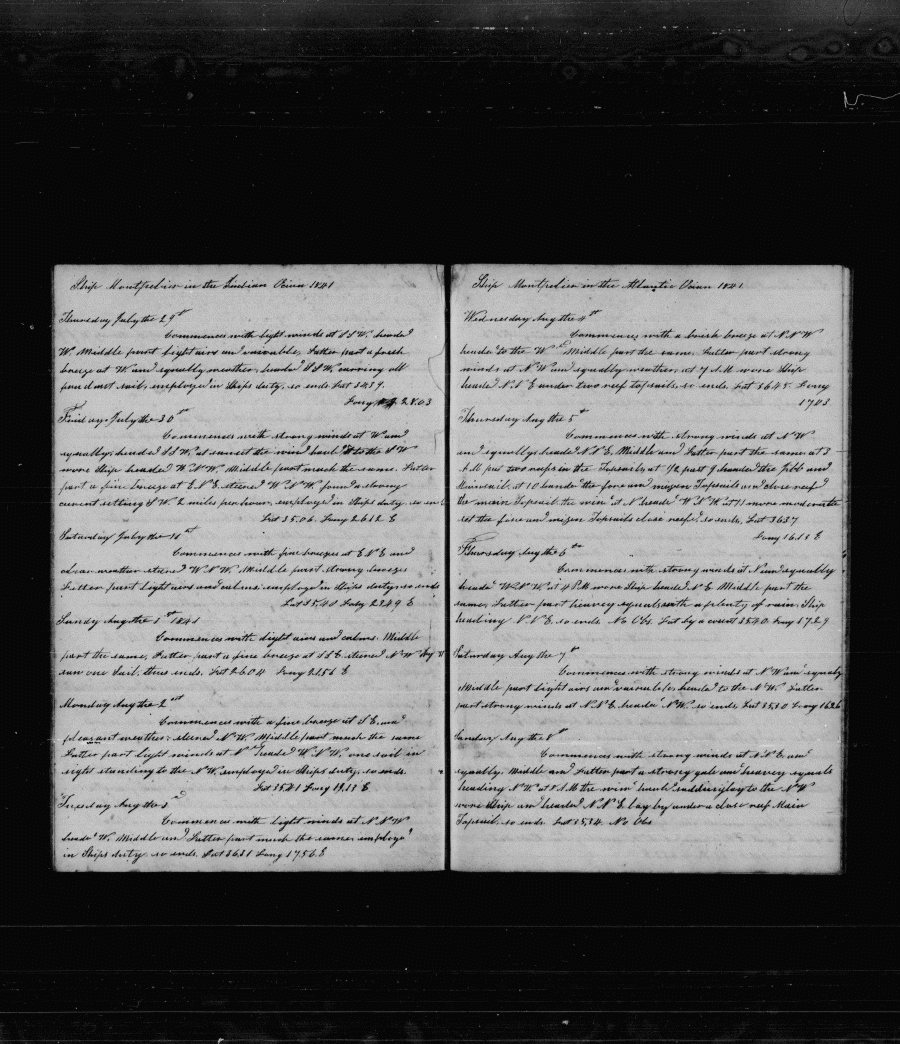 Ship Montpelier in the Indian Ocean 1841
Thursday July the 29th
Commences with light winds at SSW headed
W. Middle part light airs and variable, Latter part a fresh
breeze at W and squally weather, headed SSW carrying all
prudent sail, employed in Ships duty, so ends Lat 3439.
Long 28.03
Friday July the 30th
Commences with strong winds at W and
squally, headed SSW, at sunset the wind hauld to the SW
wore Ship headed WNW Middle part much the same. Latter
part a fine breeze at ENE steered WNW found a strong
current setting SW 2 miles per hour, employed in Ships duty so ends
Lat 35.06. Long 2612 E
Saturday July the 31st
Commences with fine breezes at ENE and
clear weather steered WNW Middle part strong breezes
Latter part light airs and calms employed in Ships duty, so ends
Lat 3540 Long 2349 E
Sunday Aug the 1st 1841
Commences with light airs and calms. Middle
part the same, Latter part a fine breeze at SSE steered NW
saw one Sail. thus ends. Lat 3604 Long 2156 E
Monday Aug the 2nd
Commences with a fine breeze at SE and
pleasant weather; steered NW Middle part much the same
Latter part light winds at N headed WNW, one sail in
sight standing to the NW employed in Ships duty, so ends.
Lat 3541 Long 1913 E
Tuesday Aug the 3d
Commences with light winds at NNW
headed W Middle and Latter part much the same employed
in Ships duty so ends. Lat 3631 Long 1756 E
Ship Montpelier in the Atlantic Ocean 1841
Wednesday Aug the 4th
Commences with a brisk breeze at NNW
headed to the Wd Middle part the same. Latter part strong
winds at NW and squally weather, at 7 AM wore Ship
headed NNE under two reef topsails, so ends. Lat 3645 Long
1703
Thursday Aug the 5th
Commences with strong winds at NW
and squally headed NNE, Middle and Latter part the same at 3
AM put two reefs in the Topsails at 1/2 past 9 handed the Jibb and
Mainsail, at 10 handed the fore and mizen Topsails and close reefd
the main Topsail the wind at N headed WNW at 11 more moderate
set the fore and mizen Topsails close reefd, so ends, Lat 3637
Long 1613 E
Thursday Aug the 6th
Commences with strong winds at N and squally
headed WNW, at 4 PM wore Ship headed NE Middle part the
same, Latter part heavey squals with a plenty of rain, Ship
heading NNE, so ends No Obs. Lat by account 3540. Long 1729
Saturday Aug the 7th
Commences with strong winds at NW and squaly
Middle part light airs and variable, headed to the NW. Latter
part strong winds at NNE, headed NW, so ends Lat 3530 Long 1626
Sunday Aug the 8th
Commences with strong winds at NNE and
squally, Middle and Latter part a strong gale and heavey squals
heading NW at 8 AM the wind hauld suddingley to the NW
wore Ship and headed NNE lay by under a close reef Main
Topsail, so ends. Lat 3534. No Obs